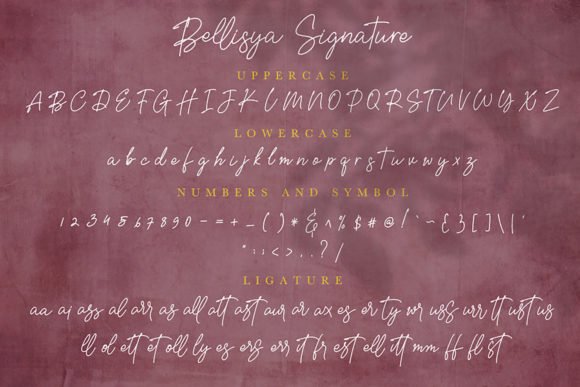 Bellisya Signature
UPPERCASE
A B C D E F G H I J K L M N O P Q R S T U V W Y X Z
LOWERCASE
a b c d e f g h i j k l m n o p q r s t u v w y x z
NUMBERS AND SYMBOL
1 2 3 4 5 6 7 8 9 0 - = + _ ( ) * & ^ % $ # @ ! ` ~ { } [ ] \ | '
" : ; < > , . ? /
LIGATURE
aa ai ass al arr as all att ast aur ar ax es er ty wr uss urr tt ust us
ll ol ett et oll ly es ers err it fr est ell itt mm ff fl st